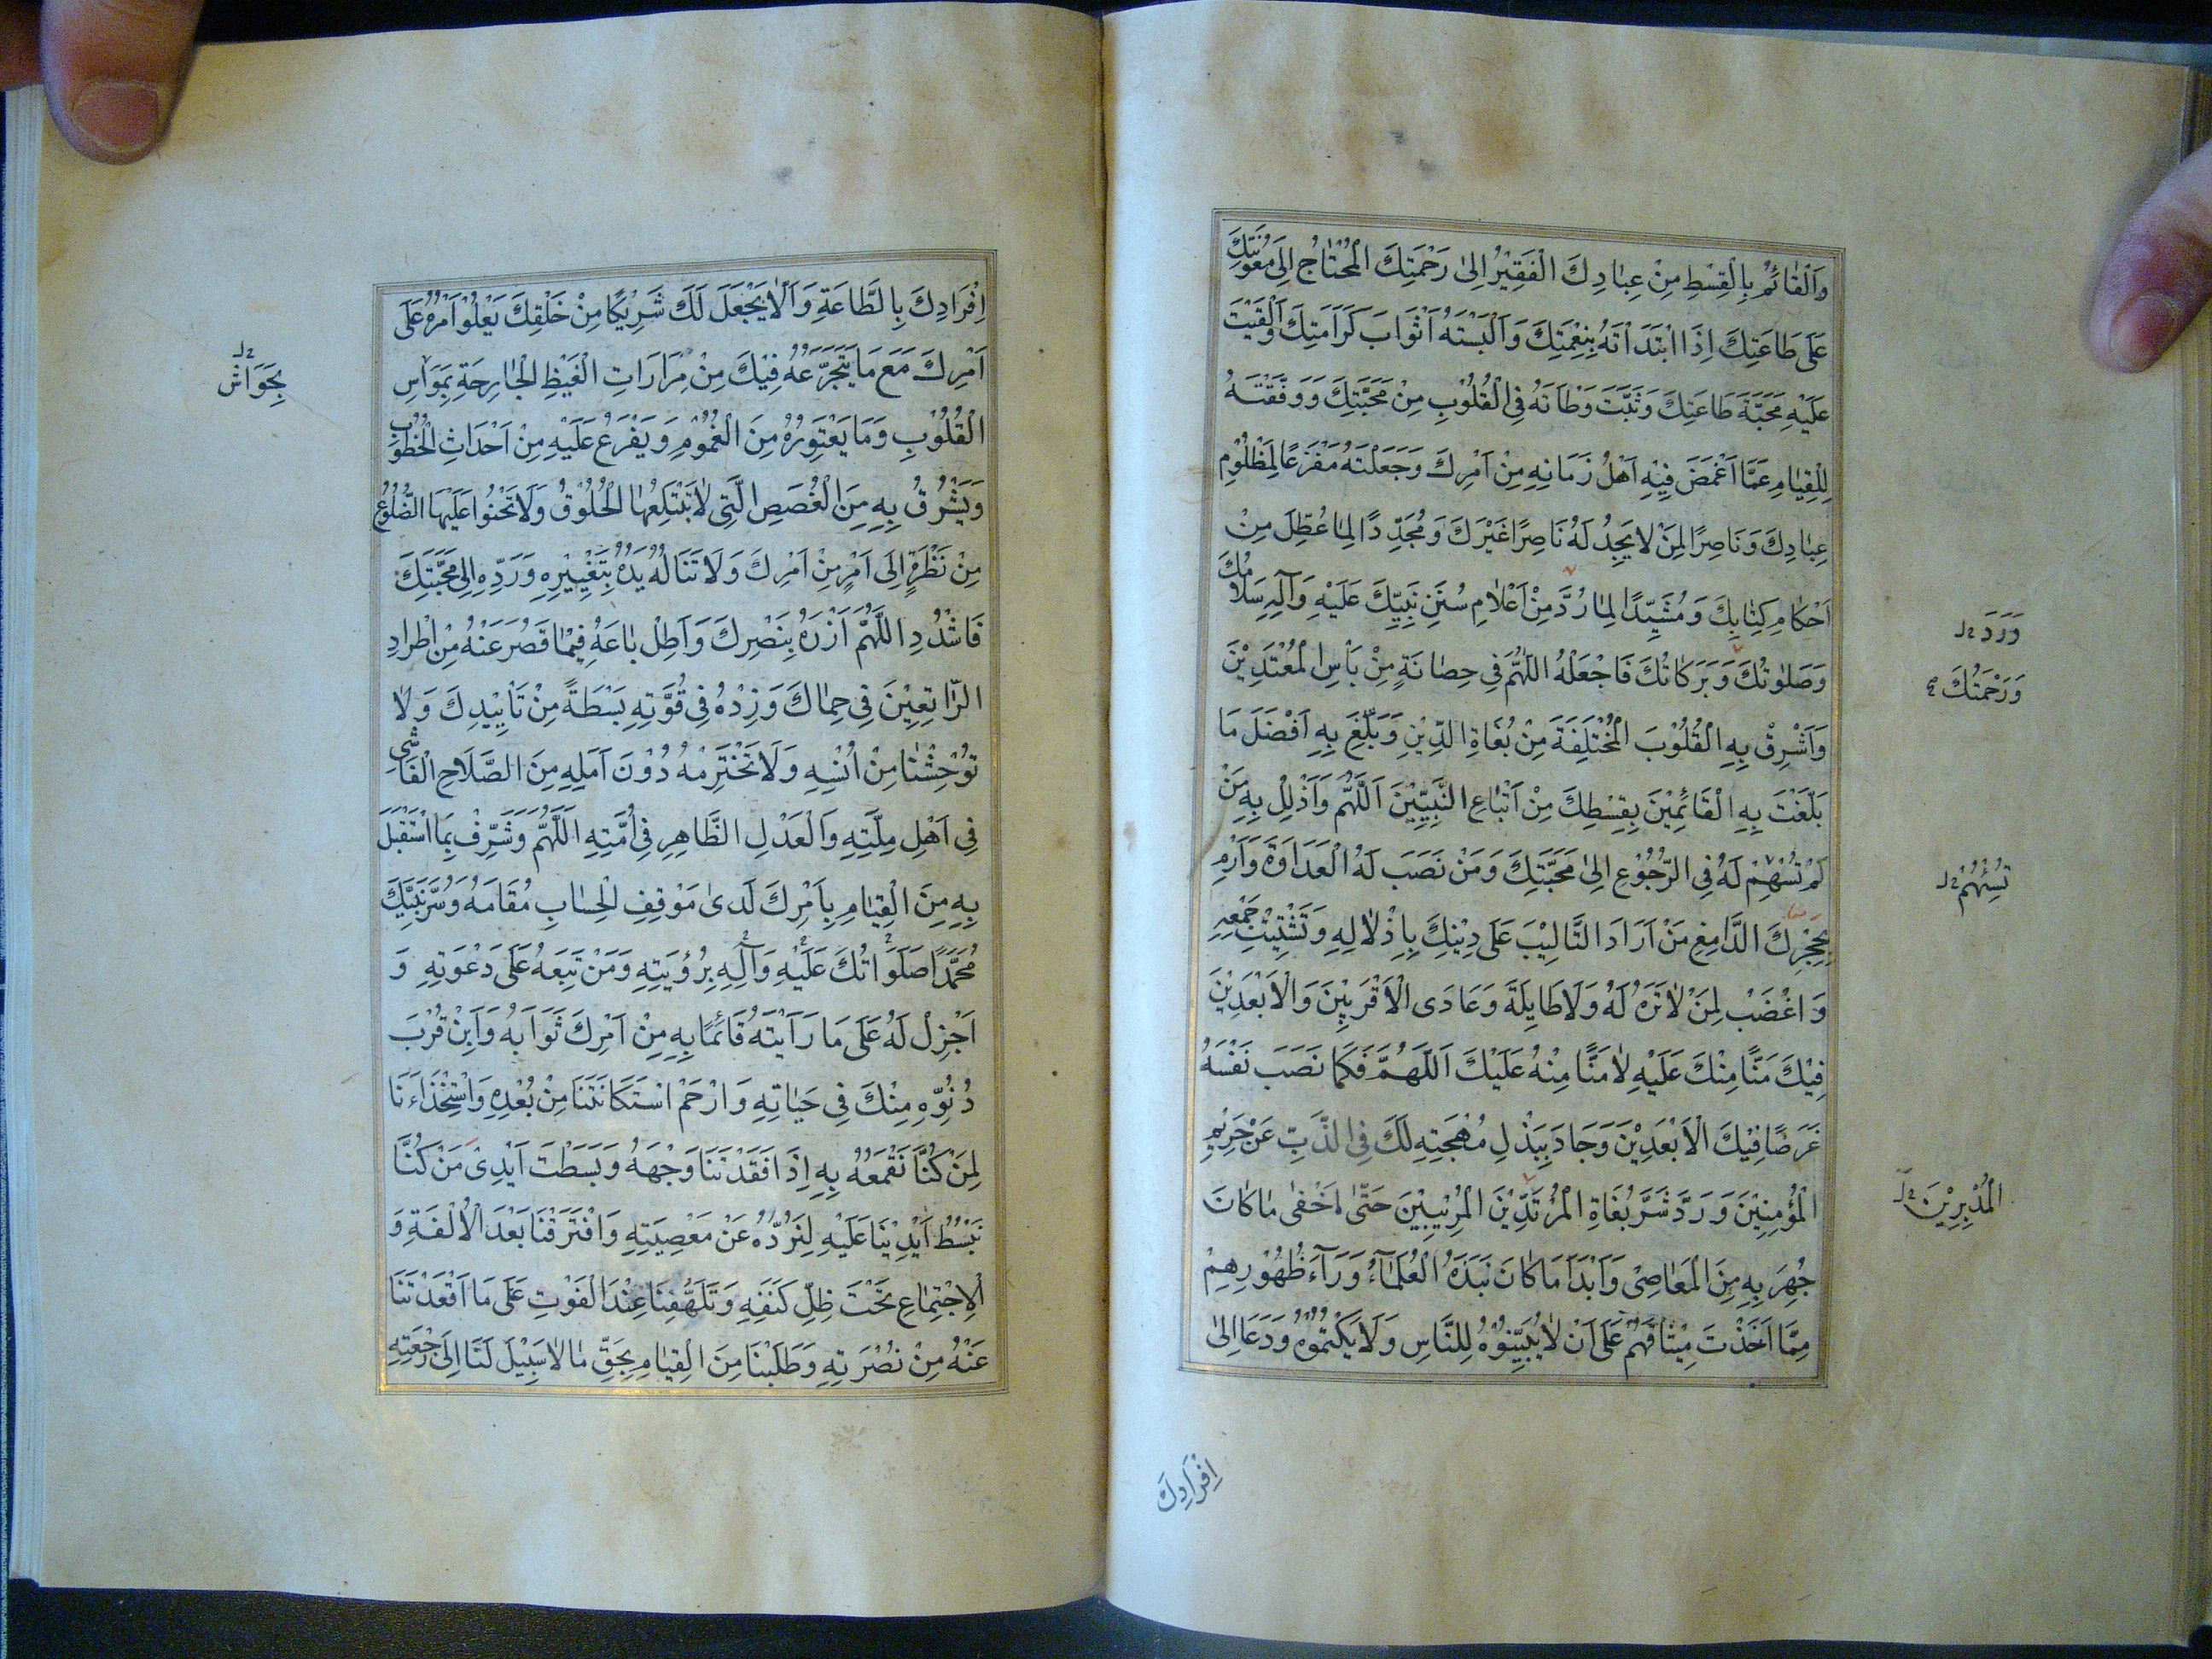 وَالْقٰائِمُ بِالْقِسْطِ مِنْ عِبٰادِكَ الْفَقِيْرُ اِلىٰ رَحْمَتِكَ الْمُحْتٰاجُ اِلىٰ مَعُونَتِكَ
عَلىٰ طَاعَتِكَ اِذَا ابْتَدَاْتَهُ بِنِعْمَتِكَ وَاَلْبَسْتَهُ اَثْوَابَ كَرَامَتِكَ وَاَلْقَيْتَ
عَلَيْهِ مَحَبَّةَ طَاعَتِكَ وَثَبَّتَّ وَطْاَتَهُ فِى الْقُلُوْبِ مِنْ مَحَبَّتِكَ وَوَفَّقْتَهُ
لِلْقِيٰامِ عَمَّا اَغْمَضَ فِيْهِ اَهْلُ زَمَانِهِ مِنْ اَمْرِكَ وَجَعَلْتَهُ مَفْزَعًا لِمَظْلُوْمِ
عِبٰادِكَ وَنَاصِرًا لِمَنْ لٰا يَجِدُ لَهُ نَاصِرًا غَيْرَكَ وَمُجَدِّدًا لِمٰا عُطِّلَ مِنْ
اَحْكٰامِ كِتٰابِكَ وَمُشَيِّدًا لِمٰا رُدَّ مِنْ اَعْلٰامِ سُنَنِ نَبِيِّكَ عَلَيْهِ وَآلِهِ سَلٰامُكَ
وَصَلٰوتُكَ وَبَرَكَاتُكَ فَاجْعَلْهُ اللّٰهُمَّ فِى حِصٰانَةٍ مِنْ بَاْسِ الْمُعْتَدِيْنَ
وَاَشْرِقْ بِهِ الْقُلُوْبَ الْمُخْتَلِفَةَ مِنْ بُغَاةِ الدِّيْنِ وَبَلِّغْ بِهِ اَفْضَلَ مَا
بَلَّغْتَ بِهِ الْقَائِمِيْنَ بِقِسْطِكَ مِنْ اَتْبٰاعِ النَّبِيِّيْنَ اَللّٰهُمَّ وَاَذْلِلْ بِهِ مَنْ
لَمْ تُسْهِمْ لَهُ فِى الرُّجُوْعِ اِلىٰ مَحَبَّتِكَ وَمَنْ نَصَبَ لَهُ الْعَدَاوَةَ وَارْمِ
بِحَجَرِكَ الدَّامِغِ مَنْ اَرَادَ التَّاْلِيْبَ عَلىٰ دِيْنِكَ بِاِذْلٰالِهِ وَتَشْتِيْتِ جَمْعِهِ
وَاغْضَبْ لِمَنْ لٰا تِرَةَ لَهُ وَلَا طَايِلَةَ وَعَادَى الْاَقْرَبِيْنَ وَالْاَبْعَدِيْنَ
فِيْكَ مَنًّا مِنْكَ عَلَيْهِ لٰا مَنًّا مِنْهُ عَلَيْكَ اَللّٰهُمَّ فَكَمٰا نَصَبَ نَفْسَهُ
غَرَضًا فِيْكَ الْاَبْعَدِيْنَ وَجَادَ بِبَذْلِ مُهْجَتِهِ لَكَ فِى الذَّبِّ عَنْ حَرِيْمِ
الْمُؤْمِنِيْنَ وَرَدَّ شَرَّ بُغَاةِ الْمُرْتَدِّيْنَ الْمُرِيْبِيْنَ حَتّىٰ اَخْفىٰ مٰا كَانَ
جُهِرَ بِهِ مِنَ الْمَعٰاصِىْ وَاَبْدَا مَا كَانَ نَبَذَهُ الْعُلَمٰآءُ وَرَآءَ ظُهُوْرِهِمْ
مِمَّا اَخَذْتَ مِيْثٰاقَهُمْ عَلىٰ اَنْ لٰا يُبَيِّنُوْهُ لِلنَّاسِ وَلَا يَكْتُمُوْهُ وَدَعَا اِلىٰ
وَرَدَ
وَرَحْمَتُكَ
تُسْهِمُ
الْمُدْبِرِيْنَ
اِفْرَادِكَ
اِفْرَادِكَ بِالطَّاعَةِ وَاَلّٰا يَجْعَلَ لَكَ شَرِيْكًا مِنْ خَلْقِكَ يَعْلُوْ اَمْرُهُ عَلىٰ
اَمْرِكَ مَعَ مَا يَتَجَرَّعُهُ فِيْكَ مِنْ مَرَارَاتِ الْغَيْظِ الْجٰارِحَةِ بِمَوَاسِ
الْقُلُوْبِ وَمَا يَعْتَوِرُهُ مِنَ الْغُمُوْمِ وَيَفْرَعُ عَلَيْهِ مِنْ اَحْدَاثِ الْخُطُوْبِ
وَيَشْرَقُ بِهِ مِنَ الْغُصَصِ الَّتِى لٰا تَبْتَلِعُهَا الْحُلُوْقُ وَلَا تَحْنُوا عَلَيْهَا الضُّلُوْعُ
مِنْ نَظْرَةٍ اِلىٰ اَمْرٍ مِنْ اَمْرِكَ وَلَا تَنَالُهُ يَدُهُ بِتَغْيِيْرِهِ وَرَدِّهِ اِلىٰ مَحَبَّتِكَ
فَاشْدُدِ اللّٰهُمَّ اَزْرَهُ بِنَصْرِكَ وَاَطِلْ بٰاعَهُ فِيْمٰا قَصُرَ عَنْهُ مِنْ اِطْرَادِ
الرَّاتِعِيْنَ فِى حِمٰاكَ وَزِدْهُ فِى قُوَّتِهِ بَسْطَةً مِنْ تَاْيِيْدِكَ وَلٰا
تُوْحِشْنٰا مِنْ اُنْسِهِ وَلَا تَخْتَرِمْهُ دُوْنَ اَمَلِهِ مِنَ الصَّلَاحِ الْفَاشِى
فِى اَهْلِ مِلَّتِهِ وَالْعَدْلِ الظَّاهِرِ فِى اُمَّتِهِ اَللّٰهُمَّ وَشَرِّفْ بِمَا اسْتَقْبَلَ
بِهِ مِنَ الْقِيٰامِ بِاَمْرِكَ لَدىٰ مَوْقِفِ الْحِسٰابِ مُقَامَهُ وَسُرَّ نَبِيَّكَ
مُحَمَّدًا صَلَوَاتُكَ عَلَيْهِ وَآلِهِ بِرُؤْيَتِهِ وَمَنْ تَبِعَهُ عَلىٰ دَعْوَتِهِ وَ
اَجْزِلْ لَهُ عَلىٰ مَا رَاَيْتَهُ قَائِمًا بِهِ مِنْ اَمْرِكَ ثَوَابَهُ وَاَبِنْ قُرْبَ
دُنُوِّهِ مِنْكَ فِى حَيٰاتِهِ وَارْحَمْ اسْتِكَانَتَنَا مِنْ بُعْدِهِ وَاسْتِخْذَاءَنَا
لِمَنْ كُنَّا نَقْمَعُهُ بِهِ اِذَا فَقَدْتَنَا وَجْهَهُ وَبَسَطْتَ اَيْدِىَ مَنْ كُنَّا
نَبْسُطُ اَيْدِيْنَا عَلَيْهِ لِنَرُدَّهُ عَنْ مَعْصِيَتِهِ وَافْتَرَقْنَا بَعْدَ الْاُلْفَةِ وَ
الْاِجْتِمٰاعِ تَحْتَ ظِلِّ كَنَفِهِ وَتَلَهُّفِنَا عِنْدَ الْفَوْتِ عَلىٰ مَا اَقْعَدْتَنَا
عَنْهُ مِنْ نُصْرَتِهِ وَطَلَبْنَا مِنَ الْقِيٰامِ بِحَقِّ مٰا لٰا سَبِيْلَ لَنَا اِلىٰ رَجْعَتِهِ
بِحَوَاشْ